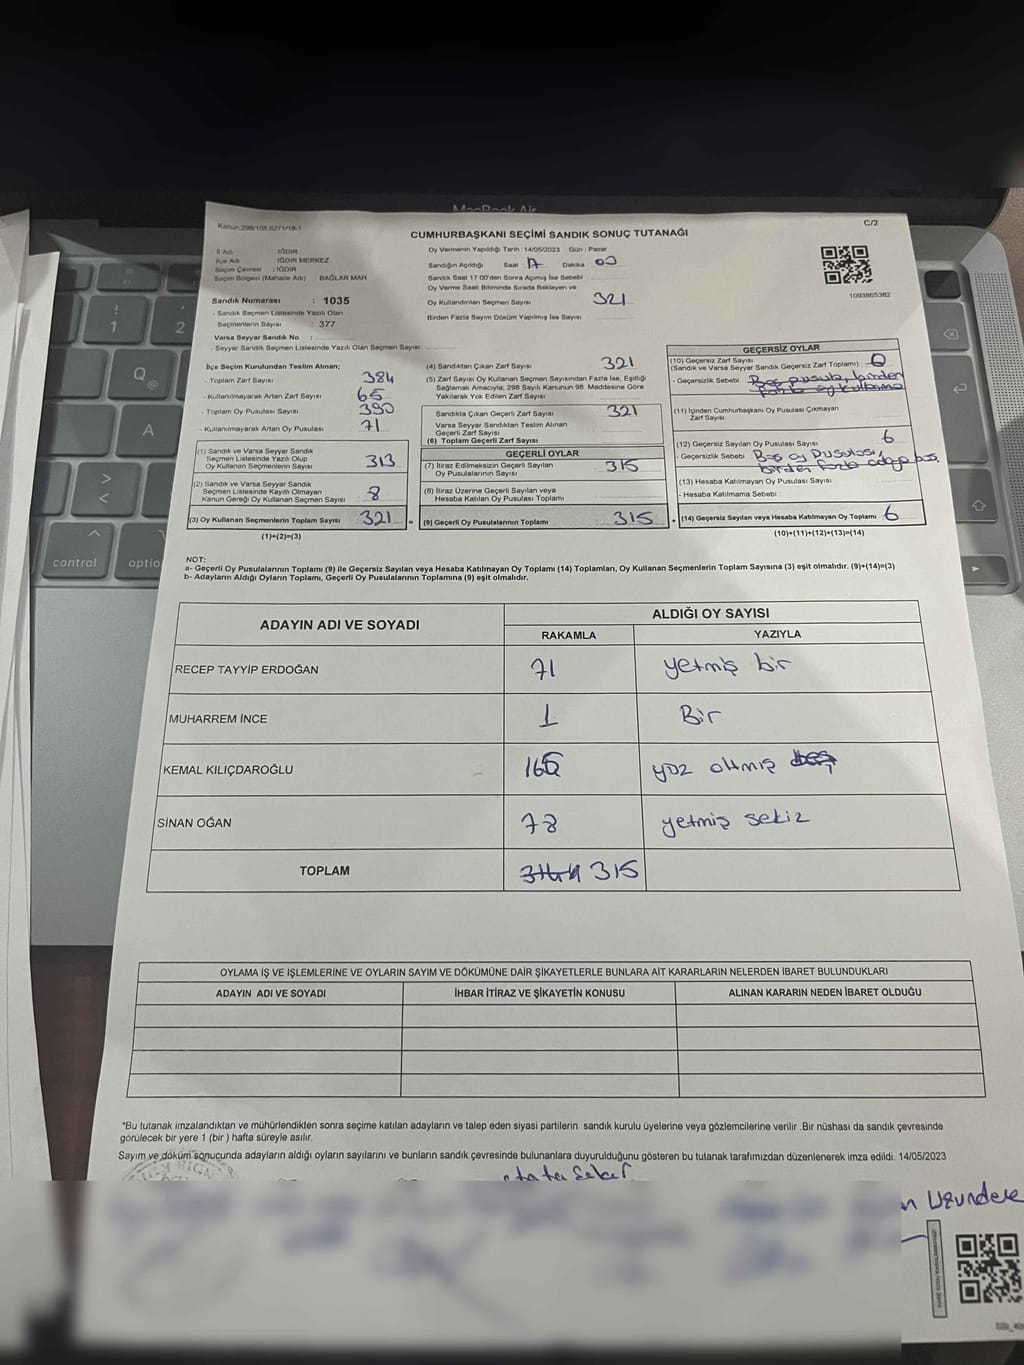 MacBook Air
Kanun:298/105 6271/18-1
C/2
CUMHURBAŞKANI SEÇİMİ SANDIK SONUÇ TUTANAĞI
İl Adı : IĞDIR
İlçe Adı : IĞDIR MERKEZ
Seçim Çevresi : IĞDIR
Seçim Bölgesi (Mahalle Adı) : BAĞLAR MAH
Sandık Numarası : 1035
- Sandık Seçmen Listesinde Yazılı Olan
Seçmenlerin Sayısı : 377
Varsa Seyyar Sandık No :
- Seyyar Sandık Seçmen Listesinde Yazılı Olan Seçmen Sayısı:
Oy Vermenin Yapıldığı Tarih :14/05/2023 Gün : Pazar
Sandığın Açıldığı Saat Dakika 00
Sandık Saat 17.00'den Sonra Açılmış İse Sebebi
Oy Verme Saati Bitiminde Sırada Bekleyen ve
Oy Kullandırılan Seçmen Sayısı 321
Birden Fazla Sayım Döküm Yapılmış İse Sayısı
1093865382
İlçe Seçim Kurulundan Teslim Alınan;
- Toplam Zarf Sayısı 384
- Kullanılmayarak Artan Zarf Sayısı 65
- Toplam Oy Pusulası Sayısı 390
- Kullanılmayarak Artan Oy Pusulası 71
(1) Sandık ve Varsa Seyyar Sandık
Seçmen Listesinde Yazılı Olup
Oy Kullanan Seçmenlerin Sayısı 313
(2) Sandık ve Varsa Seyyar Sandık
Seçmen Listesinde Kayıtlı Olmayan
Kanun Gereği Oy Kullanan Seçmen Sayısı 8
(3) Oy Kullanan Seçmenlerin Toplam Sayısı 321
(1)+(2)=(3)
(4) Sandıktan Çıkan Zarf Sayısı 321
(5) Zarf Sayısı Oy Kullanan Seçmen Sayısından Fazla İse, Eşitliği
Sağlamak Amacıyla; 298 Sayılı Kanunun 98. Maddesine Göre
Yakılarak Yok Edilen Zarf Sayısı
Sandıkta Çıkan Geçerli Zarf Sayısı 321
Varsa Seyyar Sandıktan Teslim Alınan
Geçerli Zarf Sayısı
(6) Toplam Geçerli Zarf Sayısı
GEÇERLİ OYLAR
(7) İtiraz Edilmeksizin Geçerli Sayılan
Oy Pusulalarının Sayısı 315
(8) İtiraz Üzerine Geçerli Sayılan veya
Hesaba Katılan Oy Pusulası Toplamı
= (9) Geçerli Oy Pusulalarının Toplamı 315
GEÇERSİZ OYLAR
(10) Geçersiz Zarf Sayısı
(Sandık ve Varsa Seyyar Sandık Geçersiz Zarf Toplamı) 0
- Geçersizlik Sebebi Boş pusula, birden
fazla oy kullanma
(11) İçinden Cumhurbaşkanı Oy Pusulası Çıkmayan
Zarf Sayısı
(12) Geçersiz Sayılan Oy Pusulası Sayısı 6
- Geçersizlik Sebebi Boş oy pusulası,
birden fazla adaya
(13) Hesaba Katılmayan Oy Pusulası Sayısı
- Hesaba Katılmama Sebebi
+ (14) Geçersiz Sayılan veya Hesaba Katılmayan Oy Toplamı 6
(10)+(11)+(12)+(13)=(14)
NOT:
a- Geçerli Oy Pusulalarının Toplamı (9) ile Geçersiz Sayılan veya Hesaba Katılmayan Oy Toplamı (14) Toplamları, Oy Kullanan Seçmenlerin Toplam Sayısına (3) eşit olmalıdır. (9)+(14)=(3)
b- Adayların Aldığı Oyların Toplamı, Geçerli Oy Pusulalarının Toplamına (9) eşit olmalıdır.
ADAYIN ADI VE SOYADI ALDIĞI OY SAYISI
RAKAMLA YAZIYLA
RECEP TAYYİP ERDOĞAN 71 yetmiş bir
MUHARREM İNCE 1 Bir
KEMAL KILIÇDAROĞLU 165 yüz altmış beş
SİNAN OĞAN 78 yetmiş sekiz
TOPLAM 315
OYLAMA İŞ VE İŞLEMLERİNE VE OYLARIN SAYIM VE DÖKÜMÜNE DAİR ŞİKAYETLERLE BUNLARA AİT KARARLARIN NELERDEN İBARET BULUNDUKLARI
ADAYIN ADI VE SOYADI İHBAR İTİRAZ VE ŞİKAYETİN KONUSU ALINAN KARARIN NEDEN İBARET OLDUĞU
"Bu tutanak imzalandıktan ve mühürlendikten sonra seçime katılan adayların ve talep eden siyasi partilerin sandık kurulu üyelerine veya gözlemcilerine verilir .Bir nüshası da sandık çevresinde
görülecek bir yere 1 (bir ) hafta süreyle asılır.
Sayım ve döküm sonucunda adayların aldığı oyların sayılarını ve bunların sandık çevresinde bulunanlara duyurulduğunu gösteren bu tutanak tarafımızdan düzenlenerek imza edildi. 14/05/2023
Uzundere
!
1
2
Q
@
A
>
<
control
optio